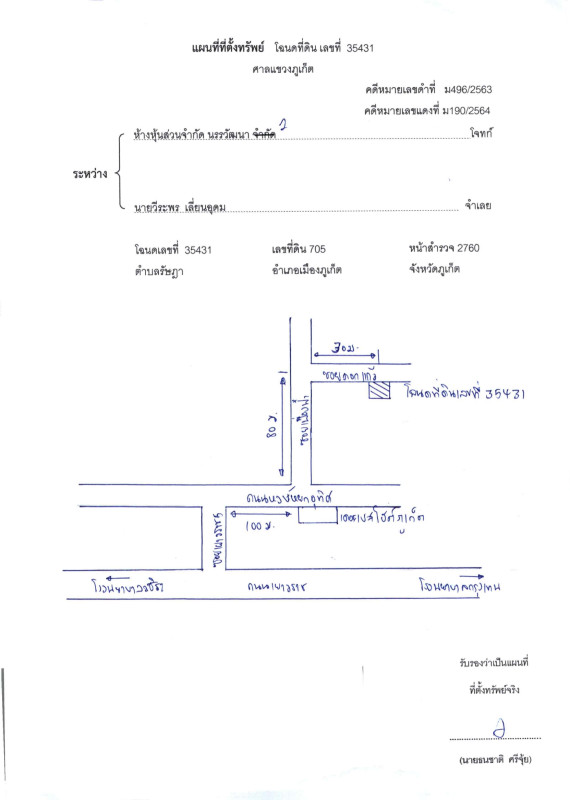 แผนที่ที่ตั้งทรัพย์ โฉนดที่ดิน เลขที่ 35431
ศาลแขวงภูเก็ต
คดีหมายเลขดำที่ ม496/2563
คดีหมายเลขแดงที่ ม190/2564
ห้างหุ้นส่วนจำกัด นรรวัฒนา จำกัด โจทก์
ระหว่าง
นายวีระพร เลี่ยนอุดม จำเลย
โฉนดเลขที่ 35431 เลขที่ดิน 705 หน้าสำรวจ 2760
ตำบลรัษฎา อำเภอเมืองภูเก็ต จังหวัดภูเก็ต
30 ม.
ซอยดอกแก้ว
โฉนดที่ดินเลขที่ 35431
80 ม.
ถนนหงษ์หยกอุทิศ
100 ม.
ภูเก็ต
ซอยเยาวราช
โรงพยาบาลวชิระ ถนนเยาวราช โรงพยาบาลกรุงเทพ
รับรองว่าเป็นแผนที่
ที่ตั้งทรัพย์จริง
(นายธนชาติ ศรีจุ้ย)